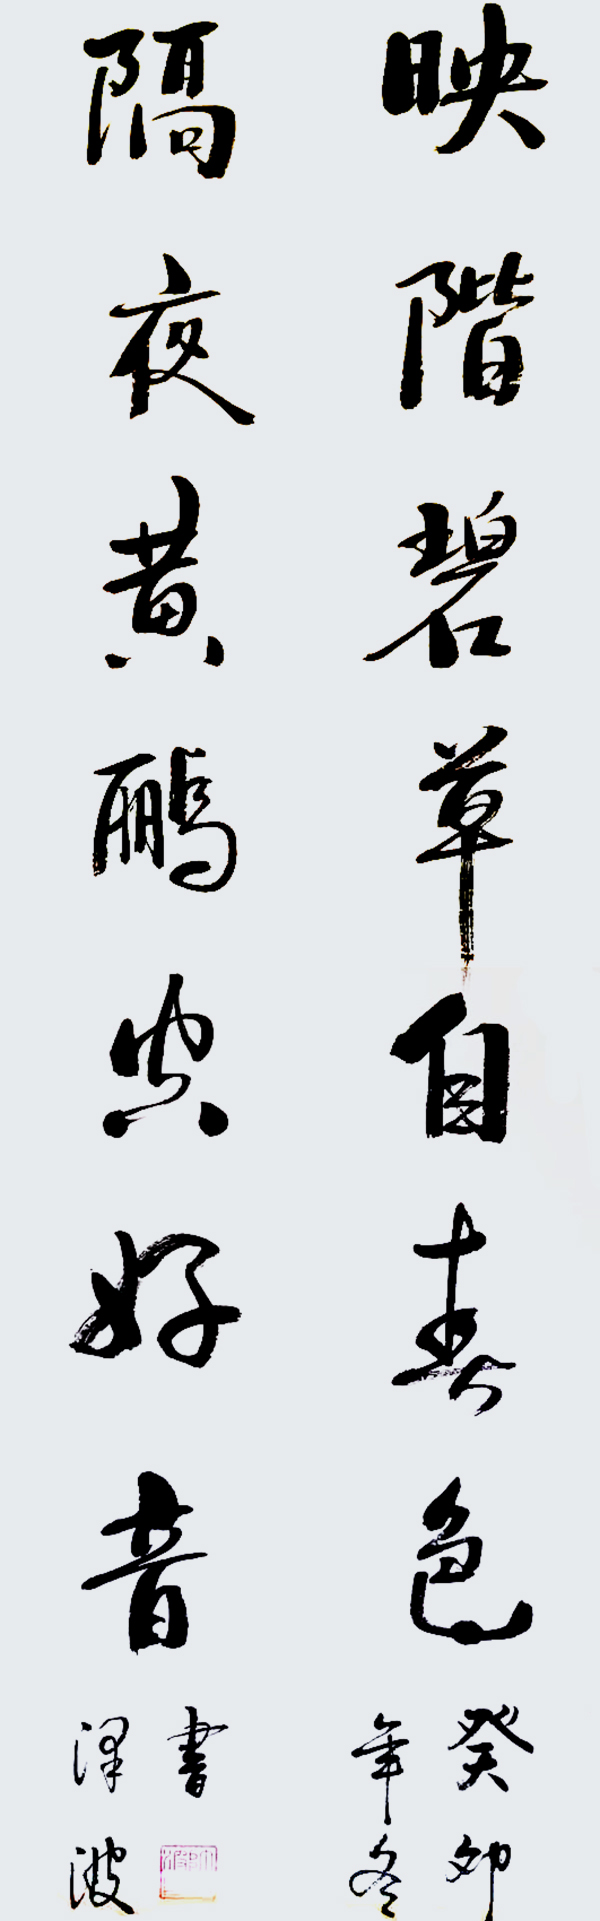 映階碧草自春色
癸卯
年冬
隔夜黄鹂空好音
書
泽波